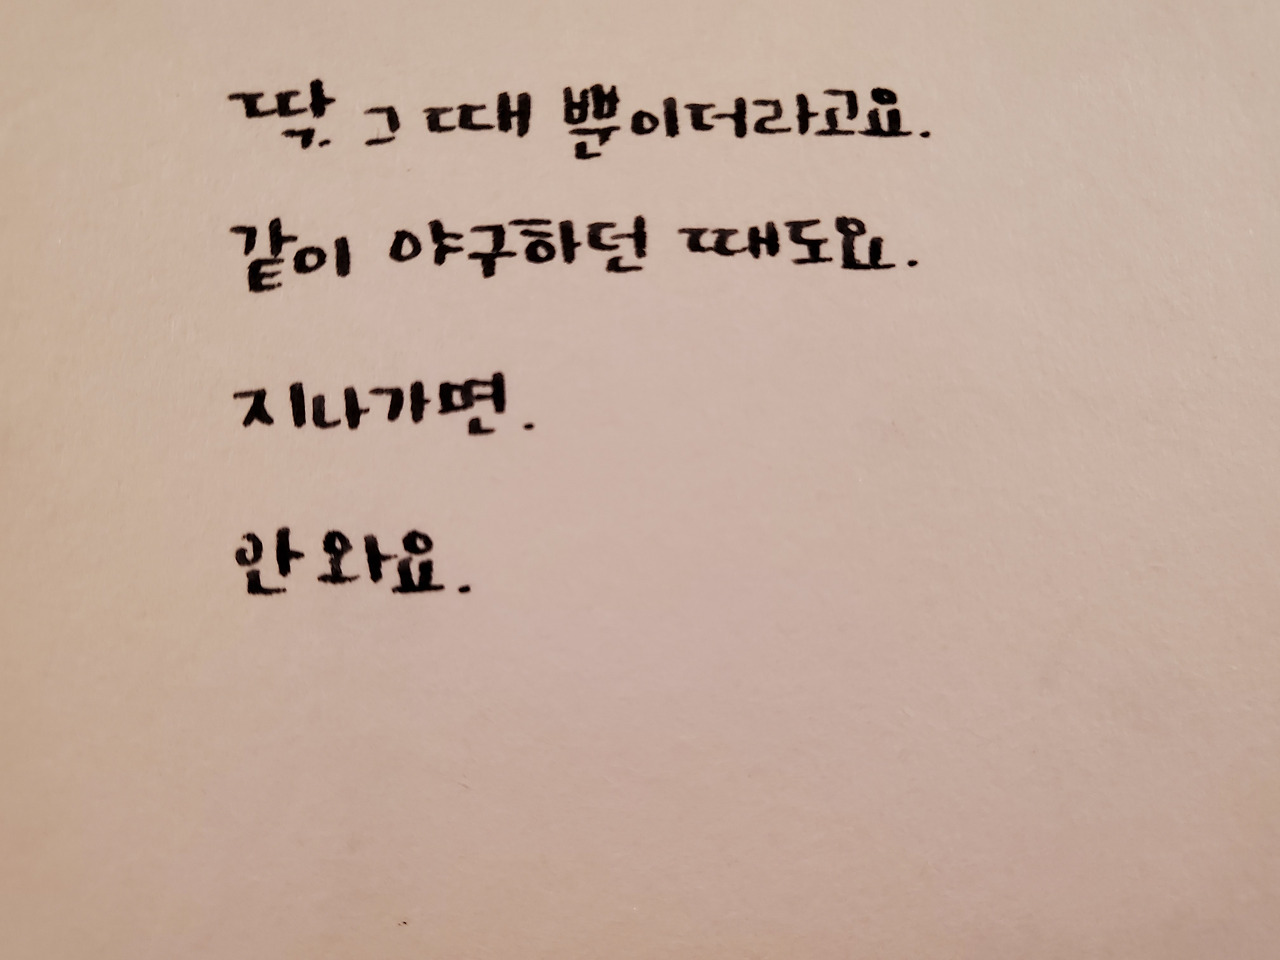 딱. 그 때 뿐이더라고요.
같이 야구하던 때도요.
지나가면.
안 와요.